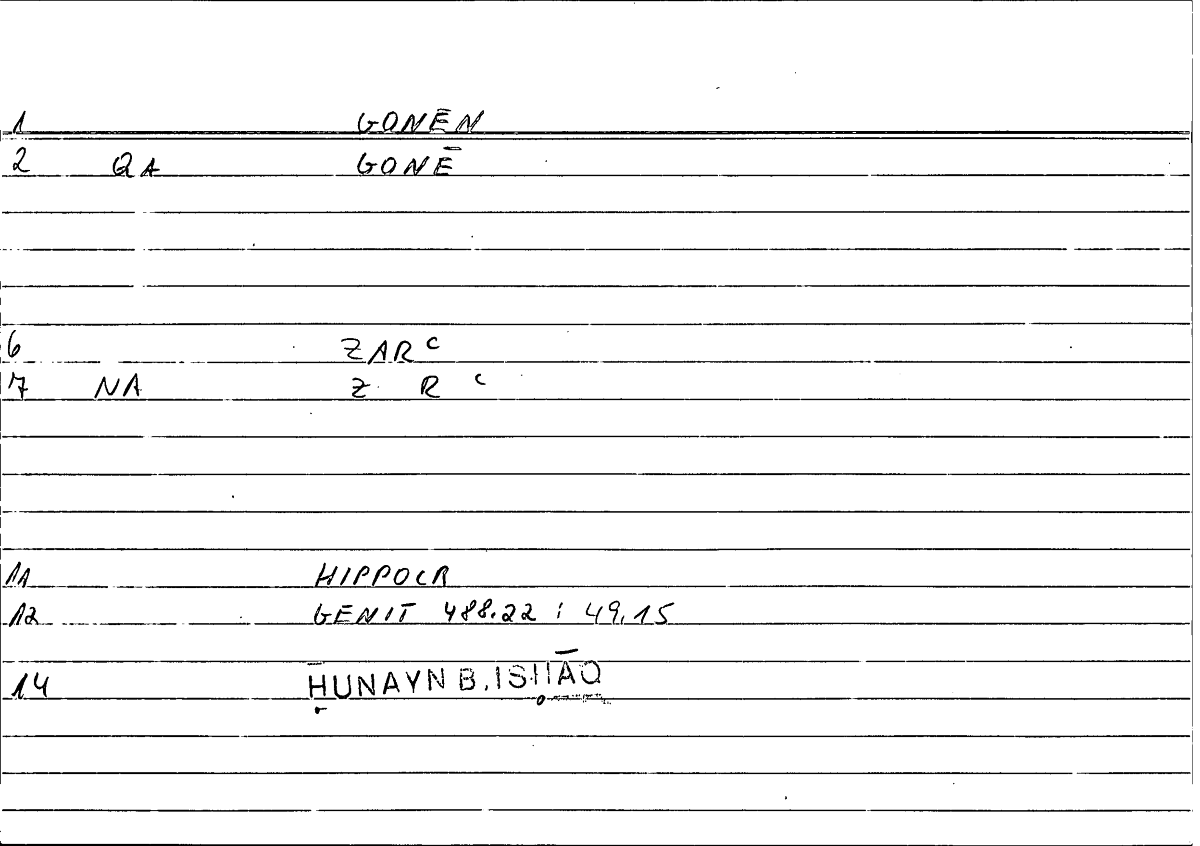 1 GONĒN
2 QA GONĒ
6 ZARᶜ
7 NA Z R ᶜ
11 HIPPOCR
12 GENIT 488.22 ; 49.15
14 ḤUNAYN B. ISḤĀQ